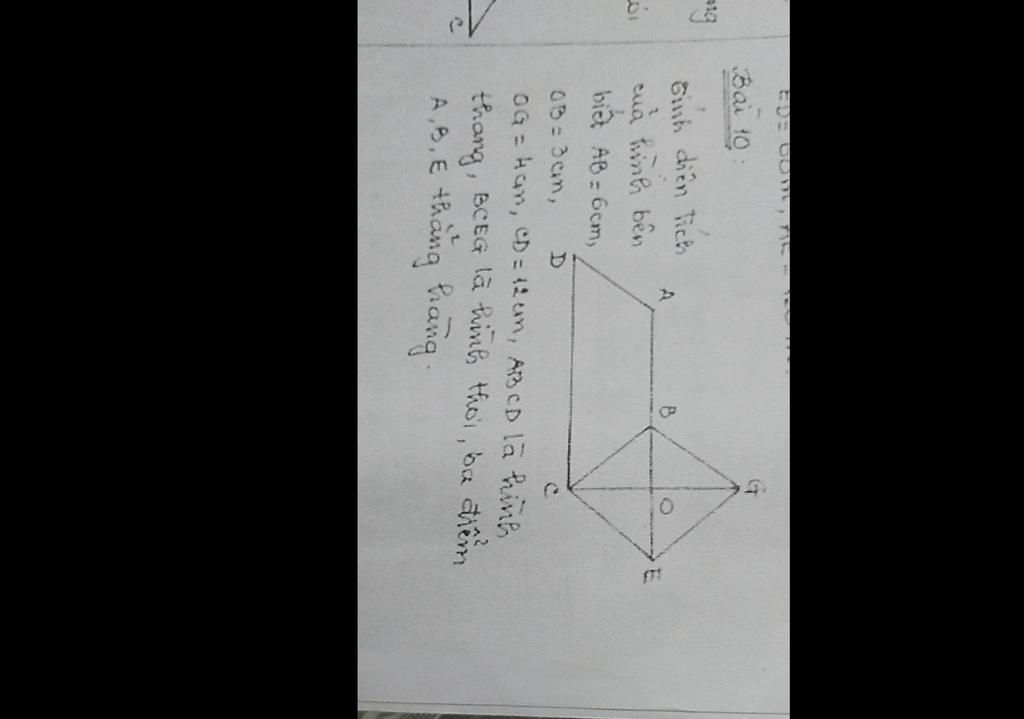 Bài 10:
Tính diện tích
của hình bên
biết AB = 6cm,
OB = 3cm,
OG = 4cm, CD = 12cm, ABCD là hình
thang, BCEG là hình thoi, ba điểm
A, B, E thẳng hàng.
A
B
G
O
E
D
C
C